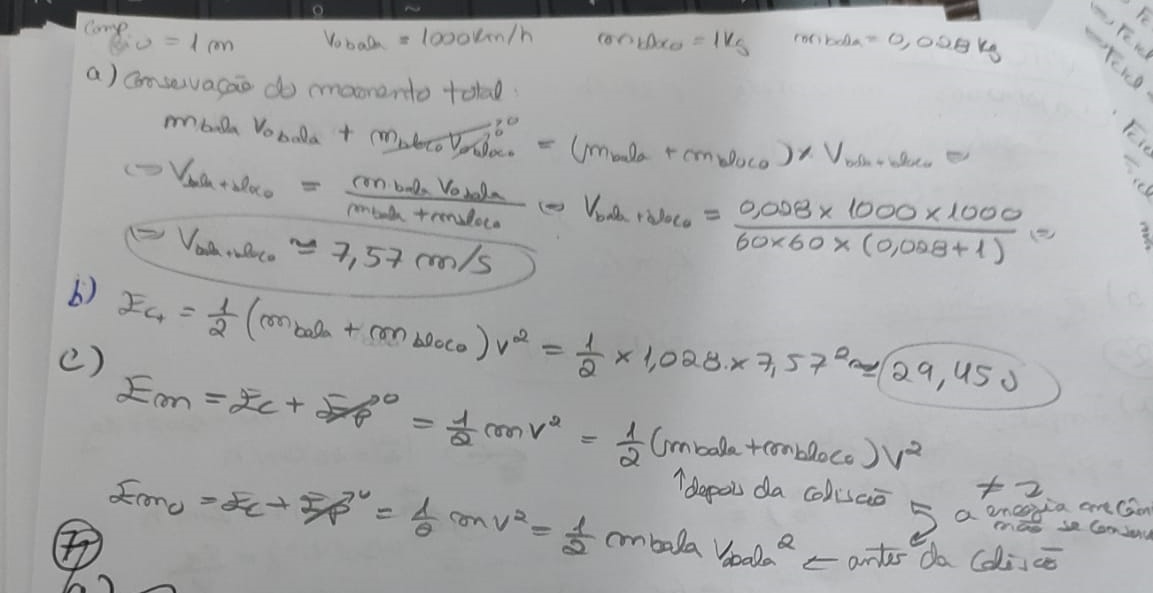 Comp fio = 1 m V0bala = 1000km/h mbloco = 1kg mbala = 0,028 kg
a) Conservação do momento total:
mbala V0bala + mbloco V0bloco →0 = (mbala + mbloco) × Vbala+bloco ⇔
⇔ Vbala+bloco = mbala V0bala / mbala + mbloco ⇔ Vbala+bloco = 0,028 × 1000 × 1000 / 60×60×(0,028+1) ⇔
⇔ Vbala+bloco ≃ 7,57 m/s
b) Ec = 1/2 (mbala + mbloco) v² = 1/2 × 1,028 × 7,57² ≃ 29,45 J
c)
Em = Ec + Ep →0 = 1/2 mv² = 1/2 (mbala + mbloco) v²
↑ depois da colisão ≠ 2
a energia mecân
não se conserv
Em0 = Ec + Ep →0 = 1/2 mv² = 1/2 mbala Vbala² ← antes da colisão
77
a)